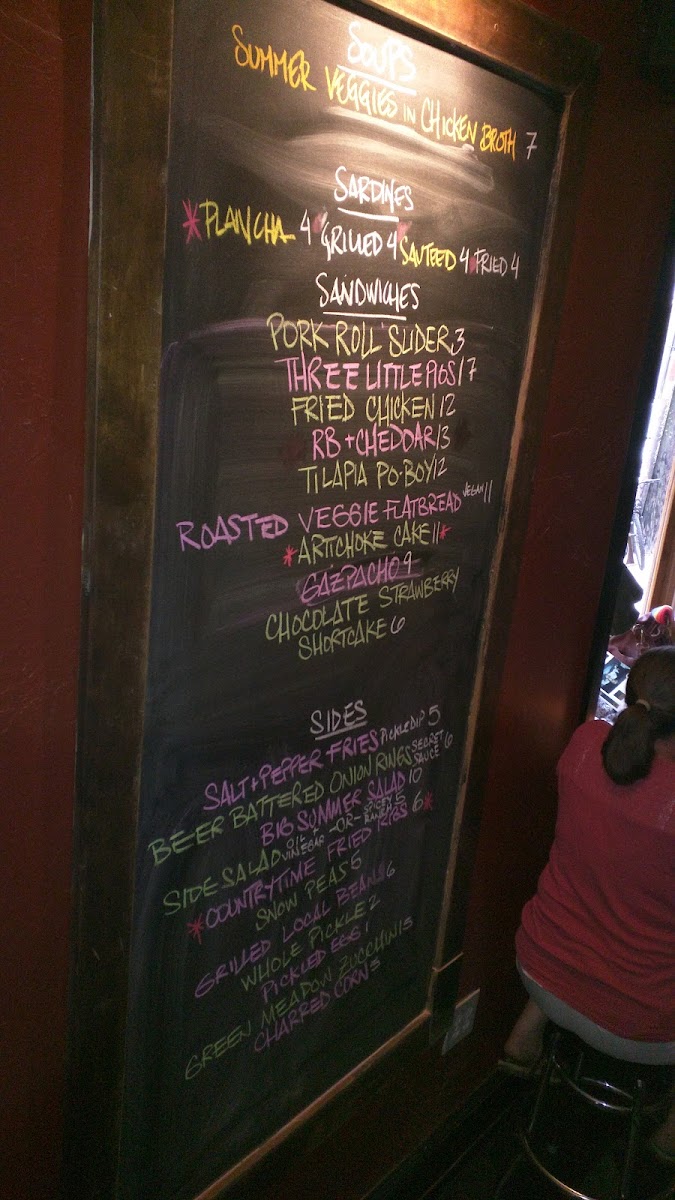 SOUPS
SUMMER VEGGIES IN CHICKEN BROTH 7
SARDINES
*PLANCHA 4 *GRILLED 4 *SAUTEED 4 *FRIED 4
SANDWICHES
PORK ROLL SLIDER 3
THREE LITTLE PIGS 17
FRIED CHICKEN 12
RB + CHEDDAR 13
TILAPIA PO-BOY 12
ROASTED VEGGIE FLATBREAD VEGAN 11
*ARTICHOKE CAKE 11*
GAZPACHO 9
CHOCOLATE STRAWBERRY
SHORTCAKE 6
SIDES
SALT + PEPPER FRIES PICKLE DIP 5
BEER BATTERED ONION RINGS SECRET SAUCE 6
BIG SUMMER SALAD 10
SIDE SALAD OIL + VINEGAR -OR- SPICY RANCH 5
*COUNTRYTIME FRIED RIBS 6*
SNOW PEAS 5
GRILLED LOCAL BEANS 6
WHOLE PICKLE 2
PICKLED EGG 1
GREEN MEADOW ZUCCHINI 5
CHARRED CORN 3